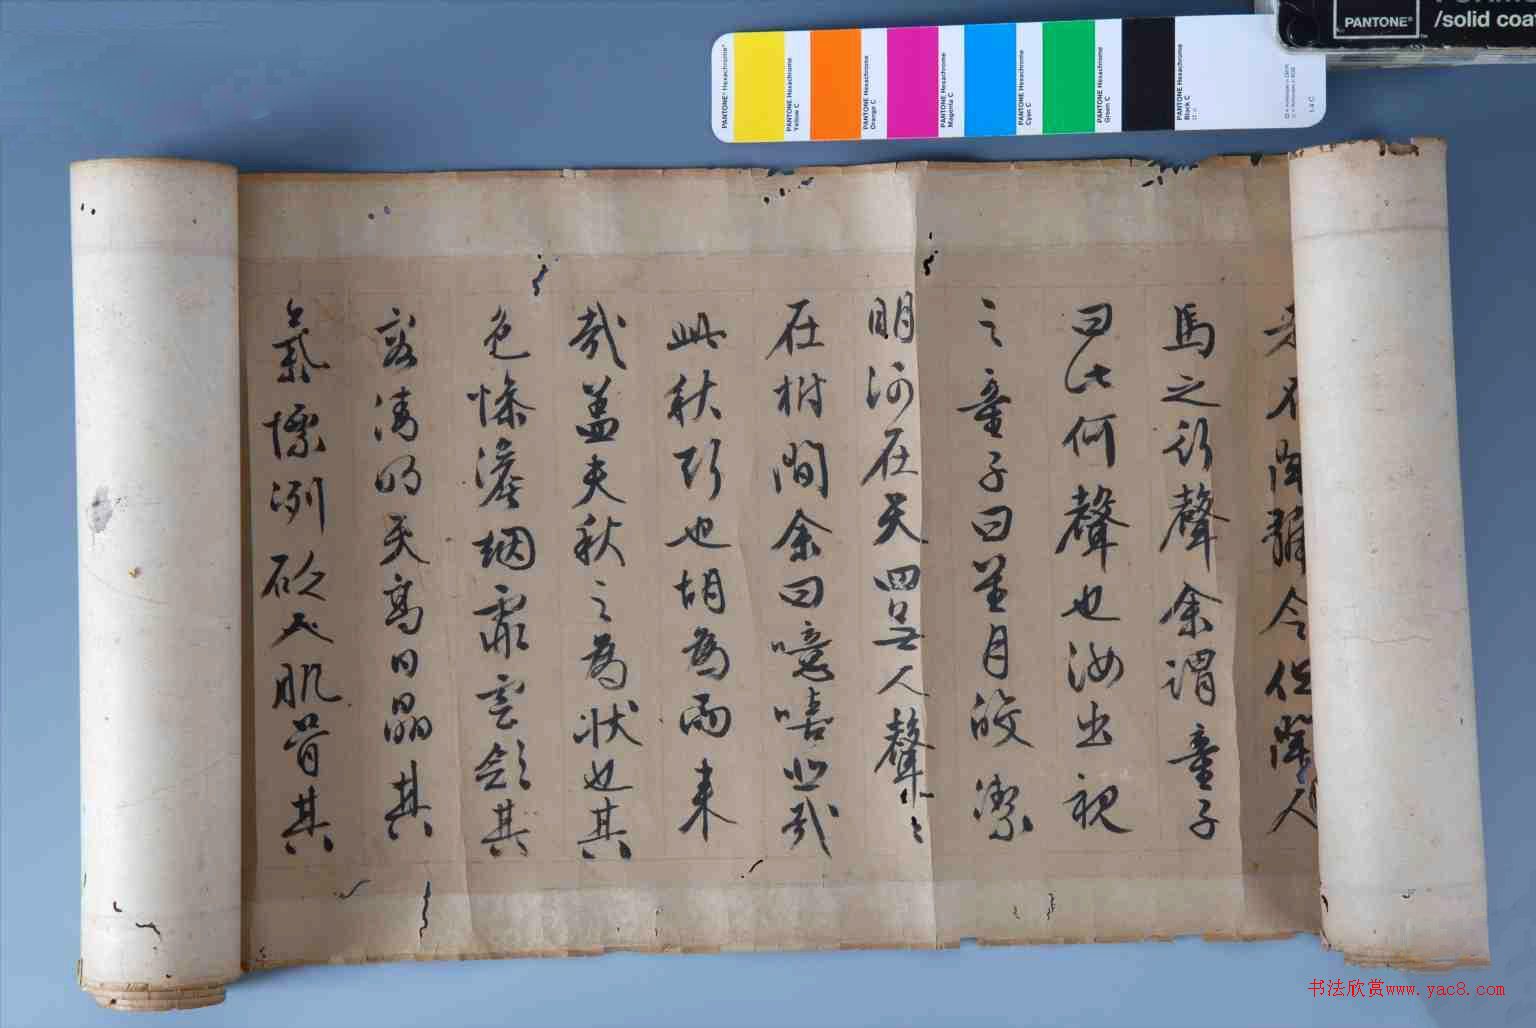 PANTONE®
/solid coat
PANTONE® Hexachrome®
PANTONE Hexachrome Yellow C
PANTONE Hexachrome Orange C
PANTONE Hexachrome Magenta C
PANTONE Hexachrome Cyan C
PANTONE Hexachrome Green C
PANTONE Hexachrome Black C
1.4 C
不聞號令但聞人
馬之行聲余謂童子
曰此何聲也汝出視
之童子曰星月皎潔
明河在天四無人聲〻
在樹間余曰噫嘻悲哉
此秋聲也胡為而來
哉蓋夫秋之為狀也其
色慘澹烟霏雲斂其
容清明天高日晶其
氣慄冽砭人肌骨其
书法欣赏www.yac8.com